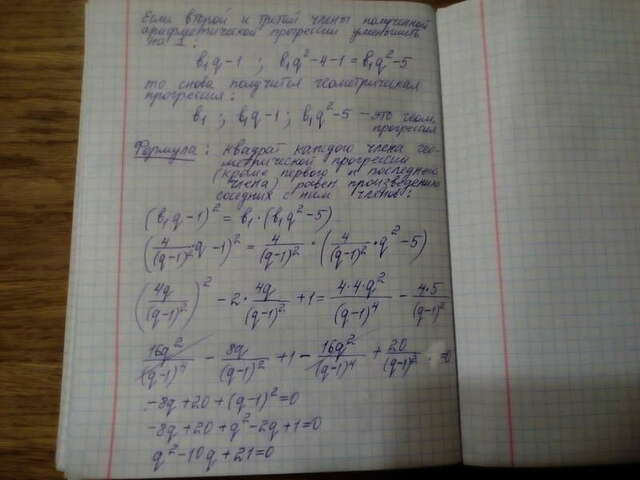 Если второй и третий члены полученной
арифметической прогрессии уменьшить
на 1:
b₁q-1 ; b₁q²-4-1=b₁q²-5
то снова получится геометрическая
прогрессия:
b₁ ; b₁q-1 ; b₁q²-5 - это геом.
прогрессия
Формула: квадрат каждого члена гео-
метрической прогрессии
(кроме первого и последнего
члена) равен произведению
соседних с ним членов:
(b₁q-1)²=b₁·(b₁q²-5)
(4/(q-1)²·q-1)²=4/(q-1)²·(4/(q-1)²·q²-5)
(4q/(q-1)²)²-2·4q/(q-1)²+1=4·4·q²/(q-1)⁴-4·5/(q-1)²
16q²/(q-1)⁴-8q/(q-1)²+1-16q²/(q-1)⁴+20/(q-1)²=0
-8q+20+(q-1)²=0
-8q+20+q²-2q+1=0
q²-10q+21=0